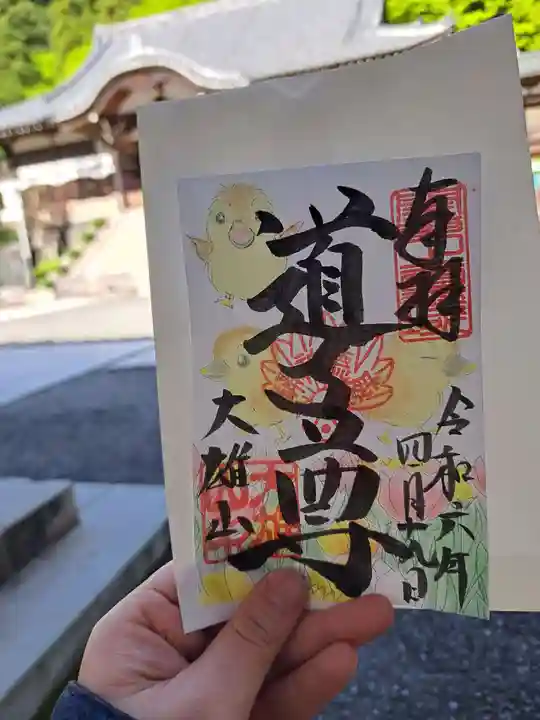 奉拝
道了尊
大雄山
令和六年
四月十九日